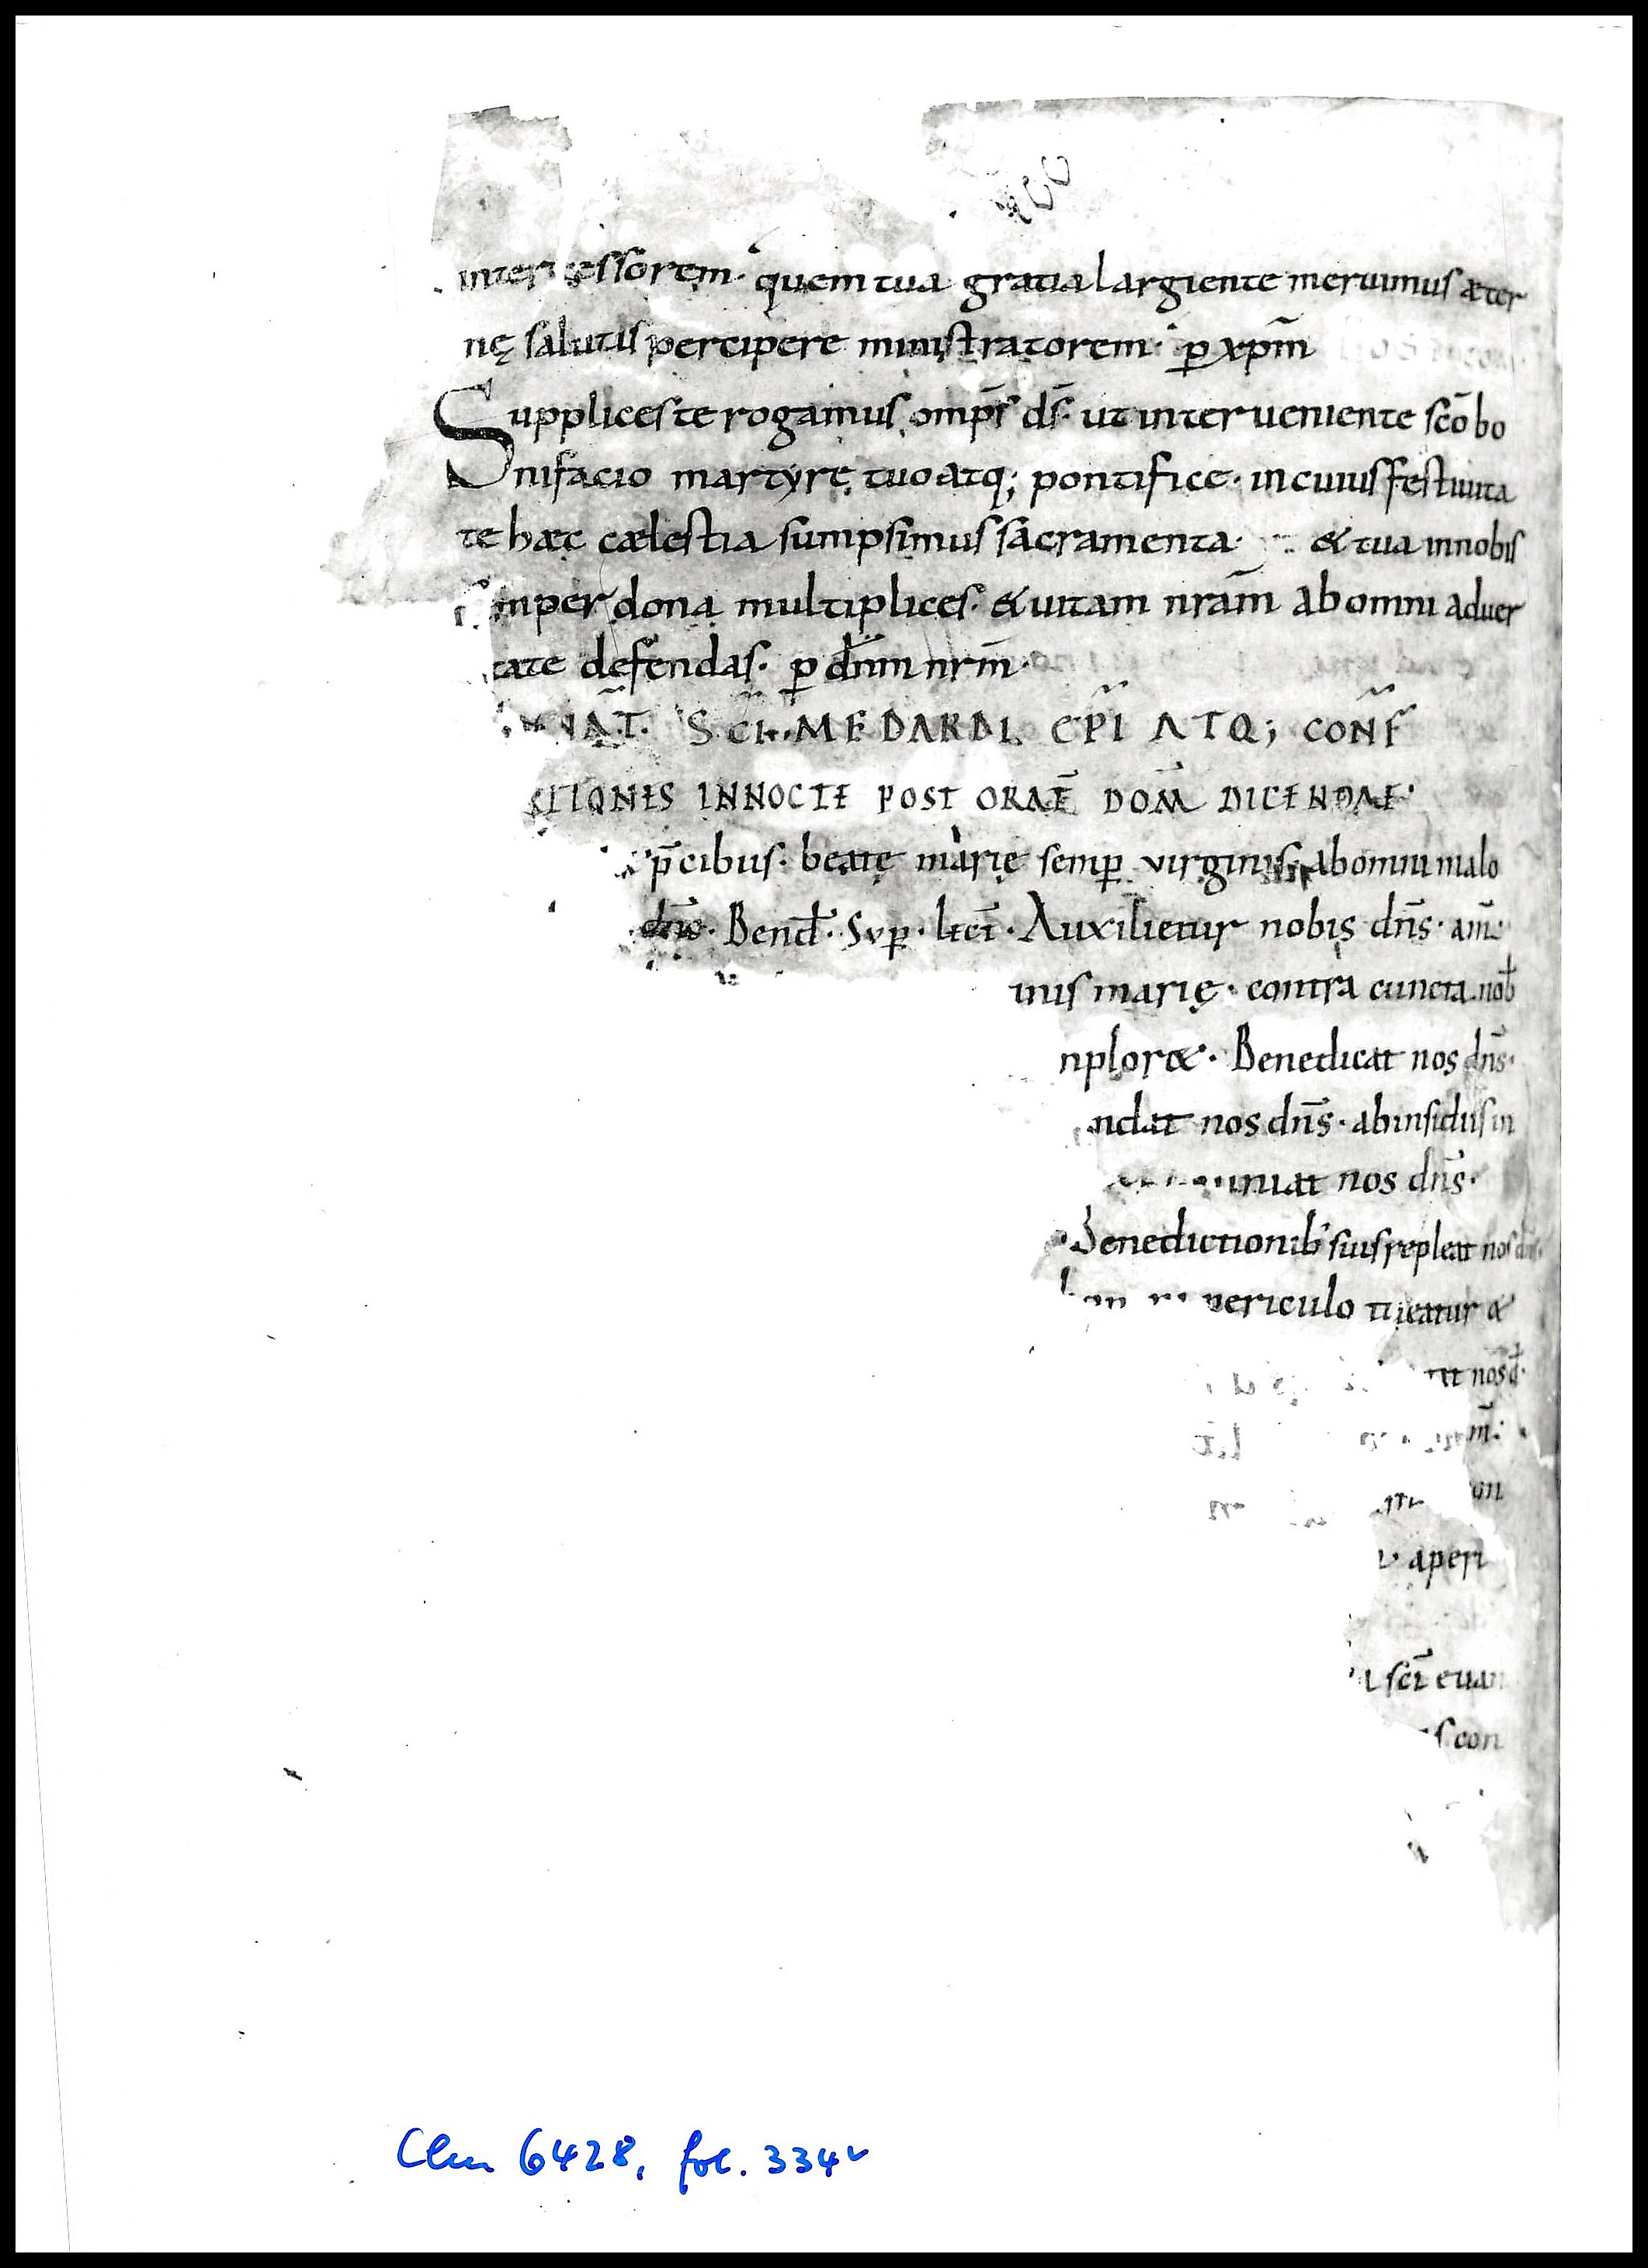 intercessorem· quem tua gratia largiente meruimus æter
nę salutis percipere ministratorem· p̲ xp̄m
Supplices te rogamus omp̄s d̄s· ut interueniente sc̄o bo
nifacio martyrę tuo atq; pontifice· in cuius festiuita
te hæc cælestia sumpsimus sacramenta· & tua in nobis
semper dona multiplices· & uitam nr̄am ab omni aduer
tate defendas· p̲ dn̄m nr̄m·
NAT̄· SC̄I MEDARDI EP̄I ATQ; CONF̄
TIONES IN NOCTE POST ORAT̄ DOM̄ DICENDAE·
p̄cibus· beatę marię semp̲ virginis· ab omni malo
dn̄s· Bened̄· Sup̲· lect̄· Auxilietur nobis dn̄s· am̄·
inis marię· contra cuncta nob̄
nploret· Benedicat nos dn̄s·
ndat nos dn̄s· ab insidiis in
uniat nos dn̄s·
Benedictionib' suis repleat nos dn̄s·
periculo tueatur &
at nos d̄·
m̄·
on
aperi
sc̄i euan
s con
Clm 6428, fol. 334v